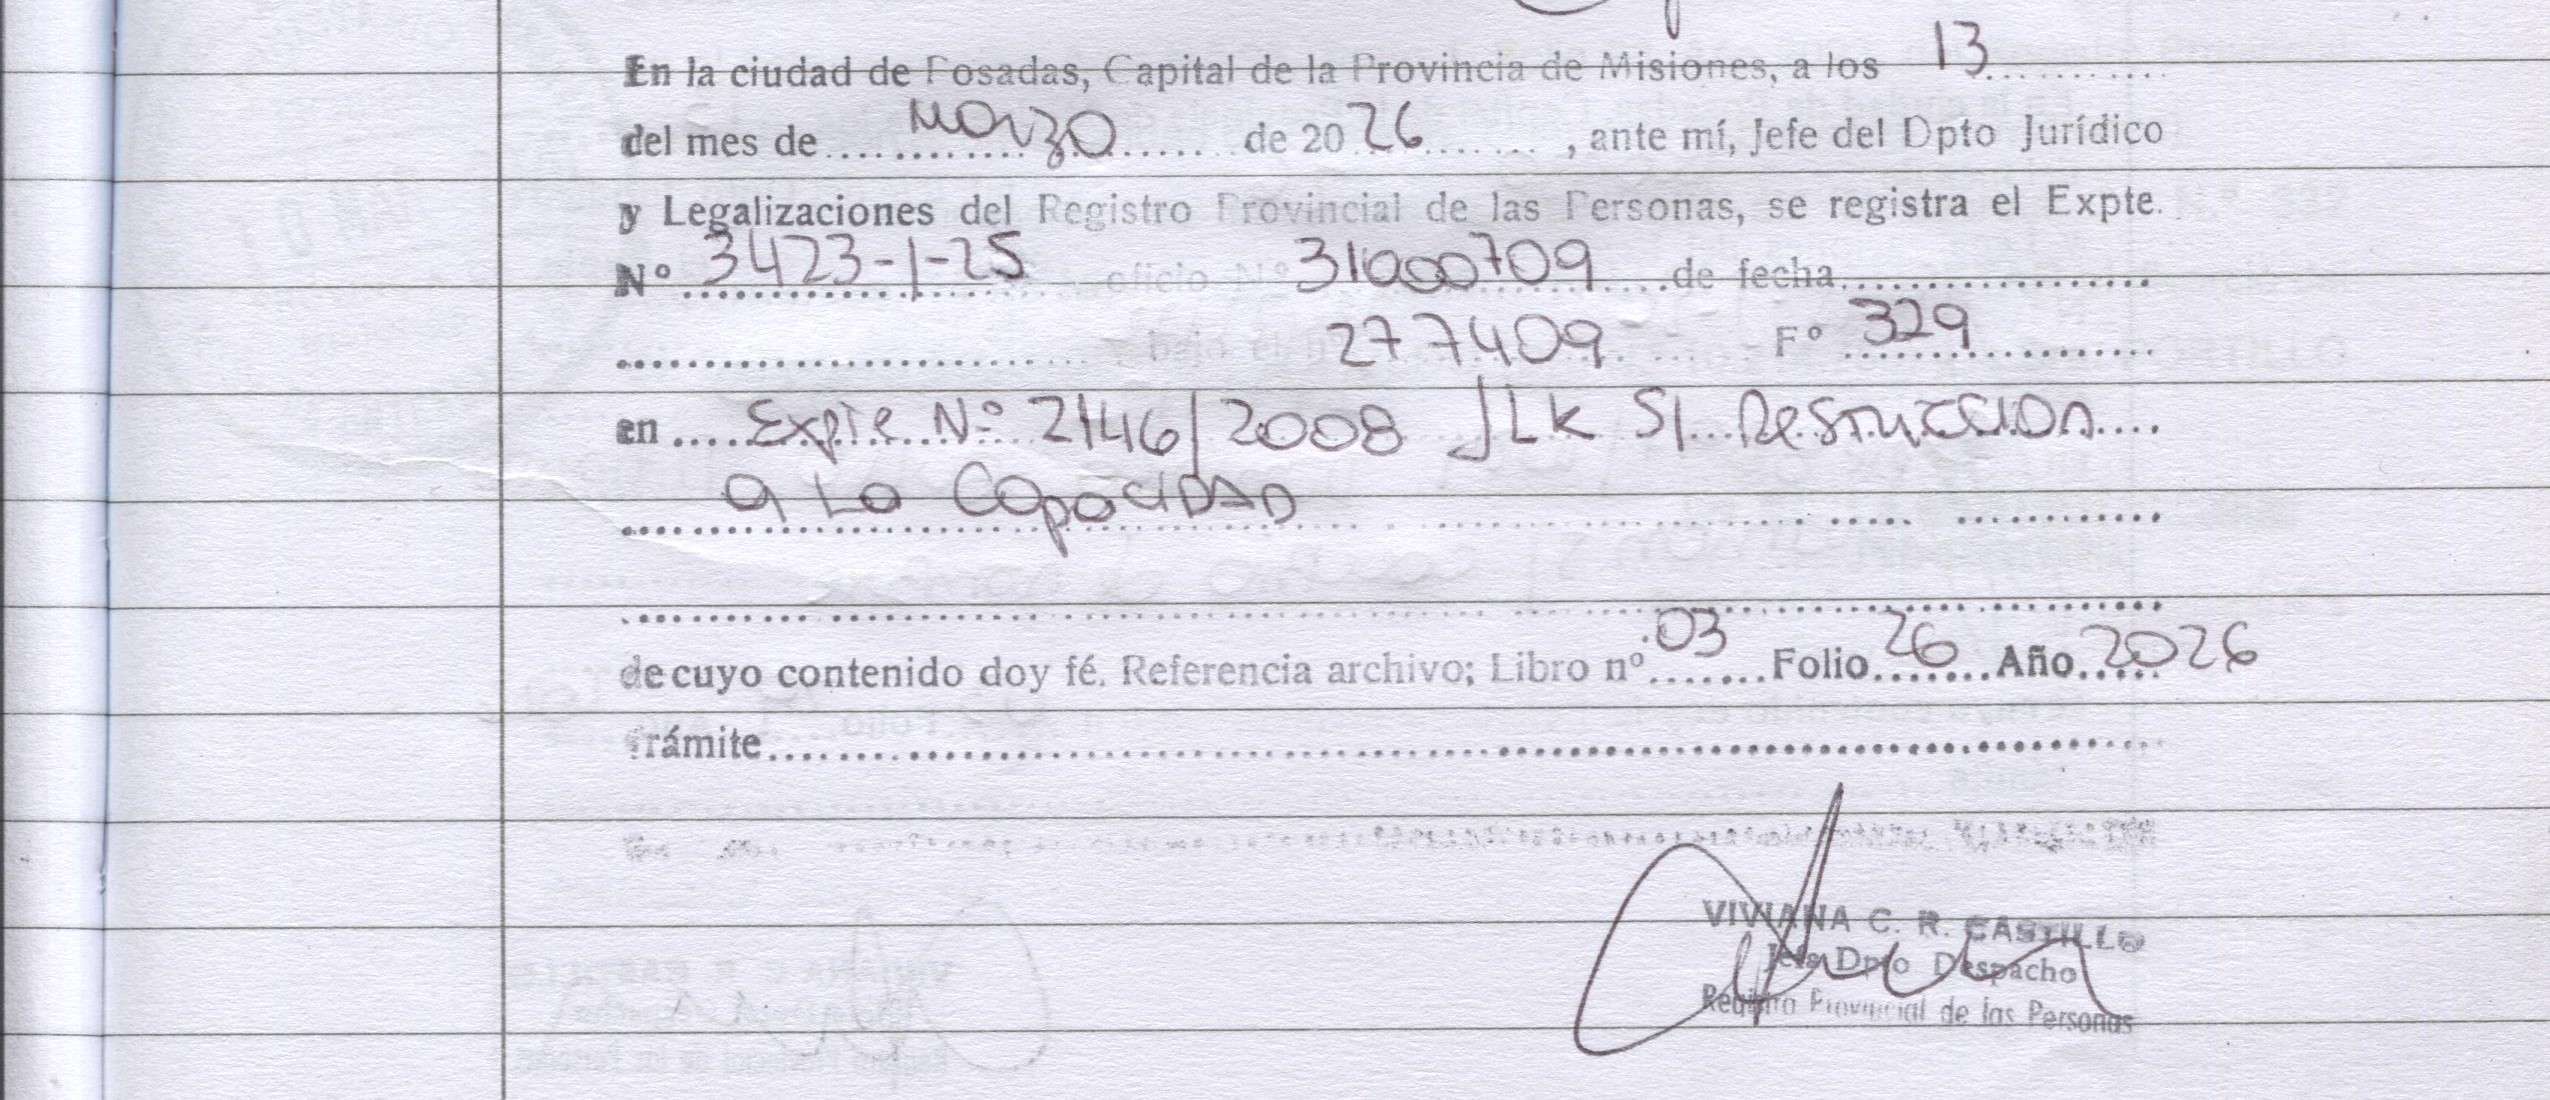 En la ciudad de Posadas, Capital de la Provincia de Misiones, a los 13..........
del mes de .......Marzo....... de 20 26........, ante mí, Jefe del Dpto Jurídico
y Legalizaciones del Registro Provincial de las Personas, se registra el Expte.
Nº 3423-1-25 oficio Nº 31000709 ....de fecha..................
............................ bajo el 277409 Fº 329..........
en .....Expte Nº 2146/2008 JLK S/ Restriccion....
a la Capacidad
de cuyo contenido doy fé. Referencia archivo; Libro nº 03 Folio 26 Año 2026
Trámite..........................................................
VIVIANA C. R. CASTILLO
Jefa Dpto Despacho
Registro Provincial de las Personas